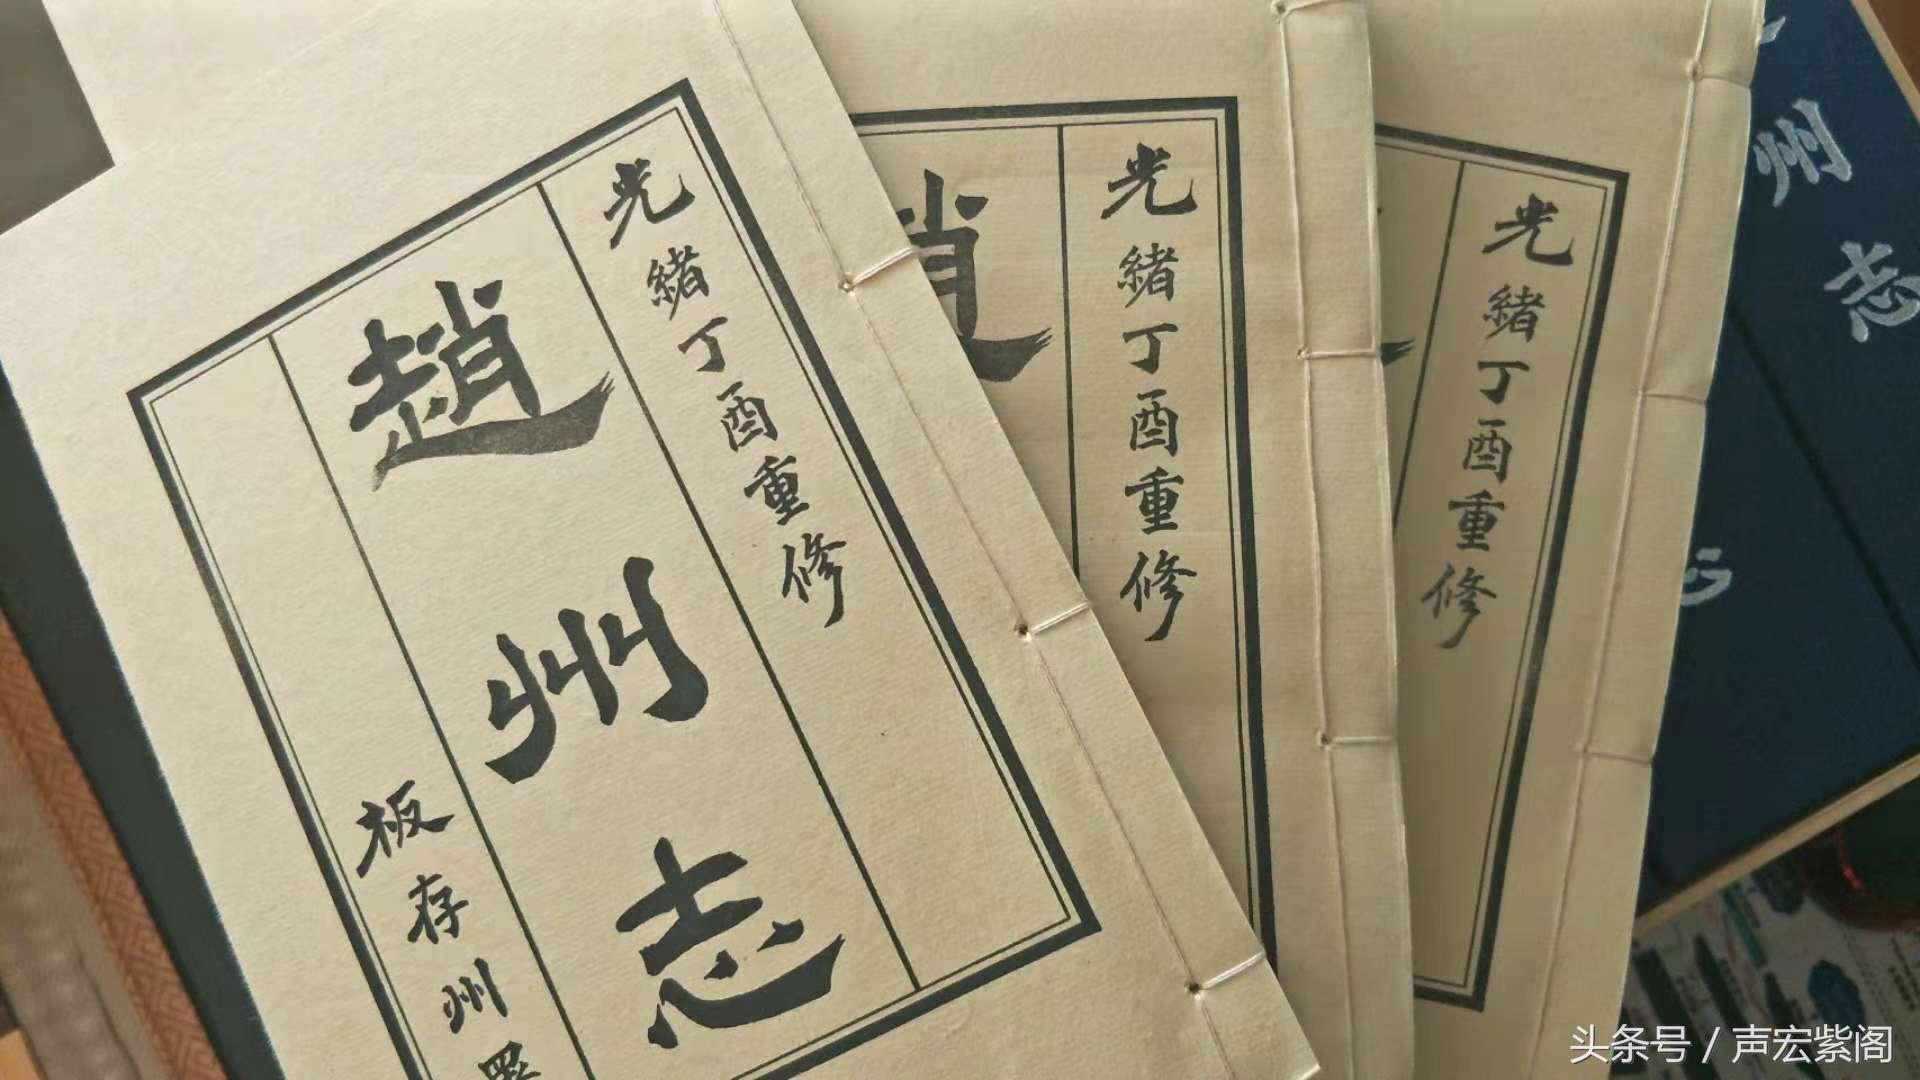 光緒丁酉重修
趙州志
板存州署
光緒丁酉重修
趙
光緒丁酉重修
州志
头条号 / 声宏紫阁